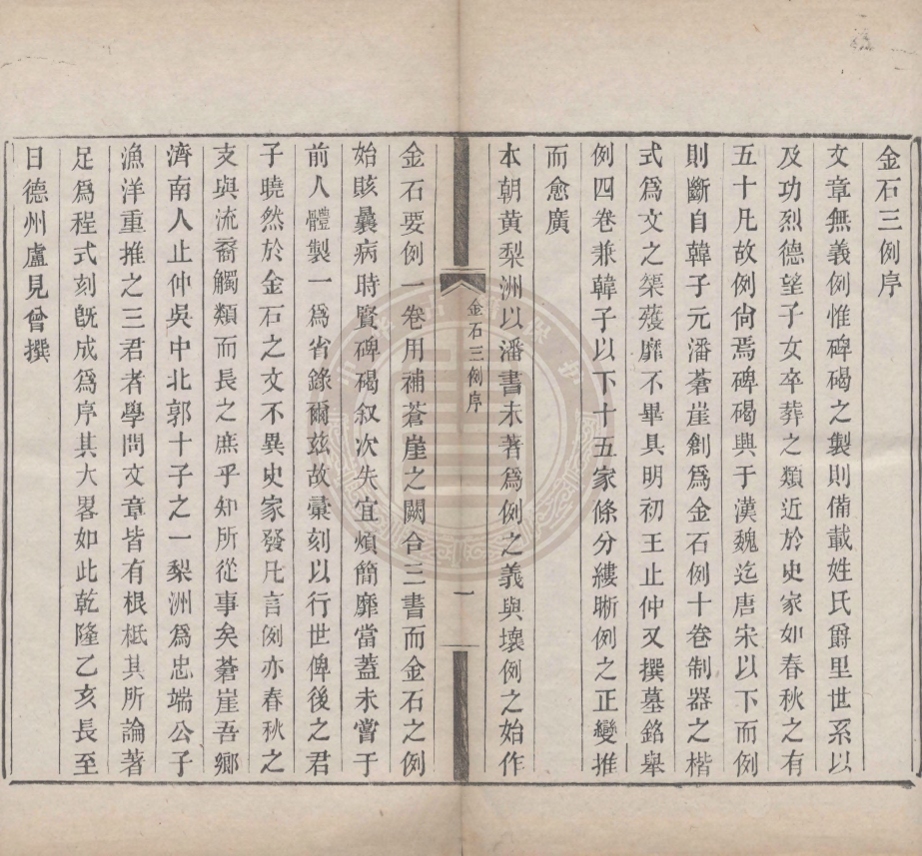 金石三例序
文章無義例惟碑碣之製則備載姓氏爵里世系以
及功烈德望子女卒葬之類近於史家如春秋之有
五十凡故例尙焉碑碣興于漢魏迄唐宋以下而例
則斷自韓子元潘蒼崖創爲金石例十卷制器之楷
式爲文之榘蒦靡不畢具明初王止仲又撰墓銘舉
例四卷兼韓子以下十五家條分縷晰例之正變推
而愈廣
本朝黄梨洲以潘書未著爲例之義與壞例之始作
金石三例序
一
金石要例一卷用補蒼崖之闕合三書而金石之例
始賅曩病時賢碑碣叙次失宜煩簡靡當蓋未嘗于
前人體製一爲省錄爾兹故彚刻以行世俾後之君
子曉然於金石之文不異史家發凡言例亦春秋之
支與流裔觸類而長之庶乎知所從事矣蒼崖吾鄉
濟南人止仲吳中北郭十子之一梨洲爲忠端公子
漁洋重推之三君者學問文章皆有根柢其所論著
足爲程式刻旣成爲序其大畧如此乾隆乙亥長至
日德州盧見曾撰